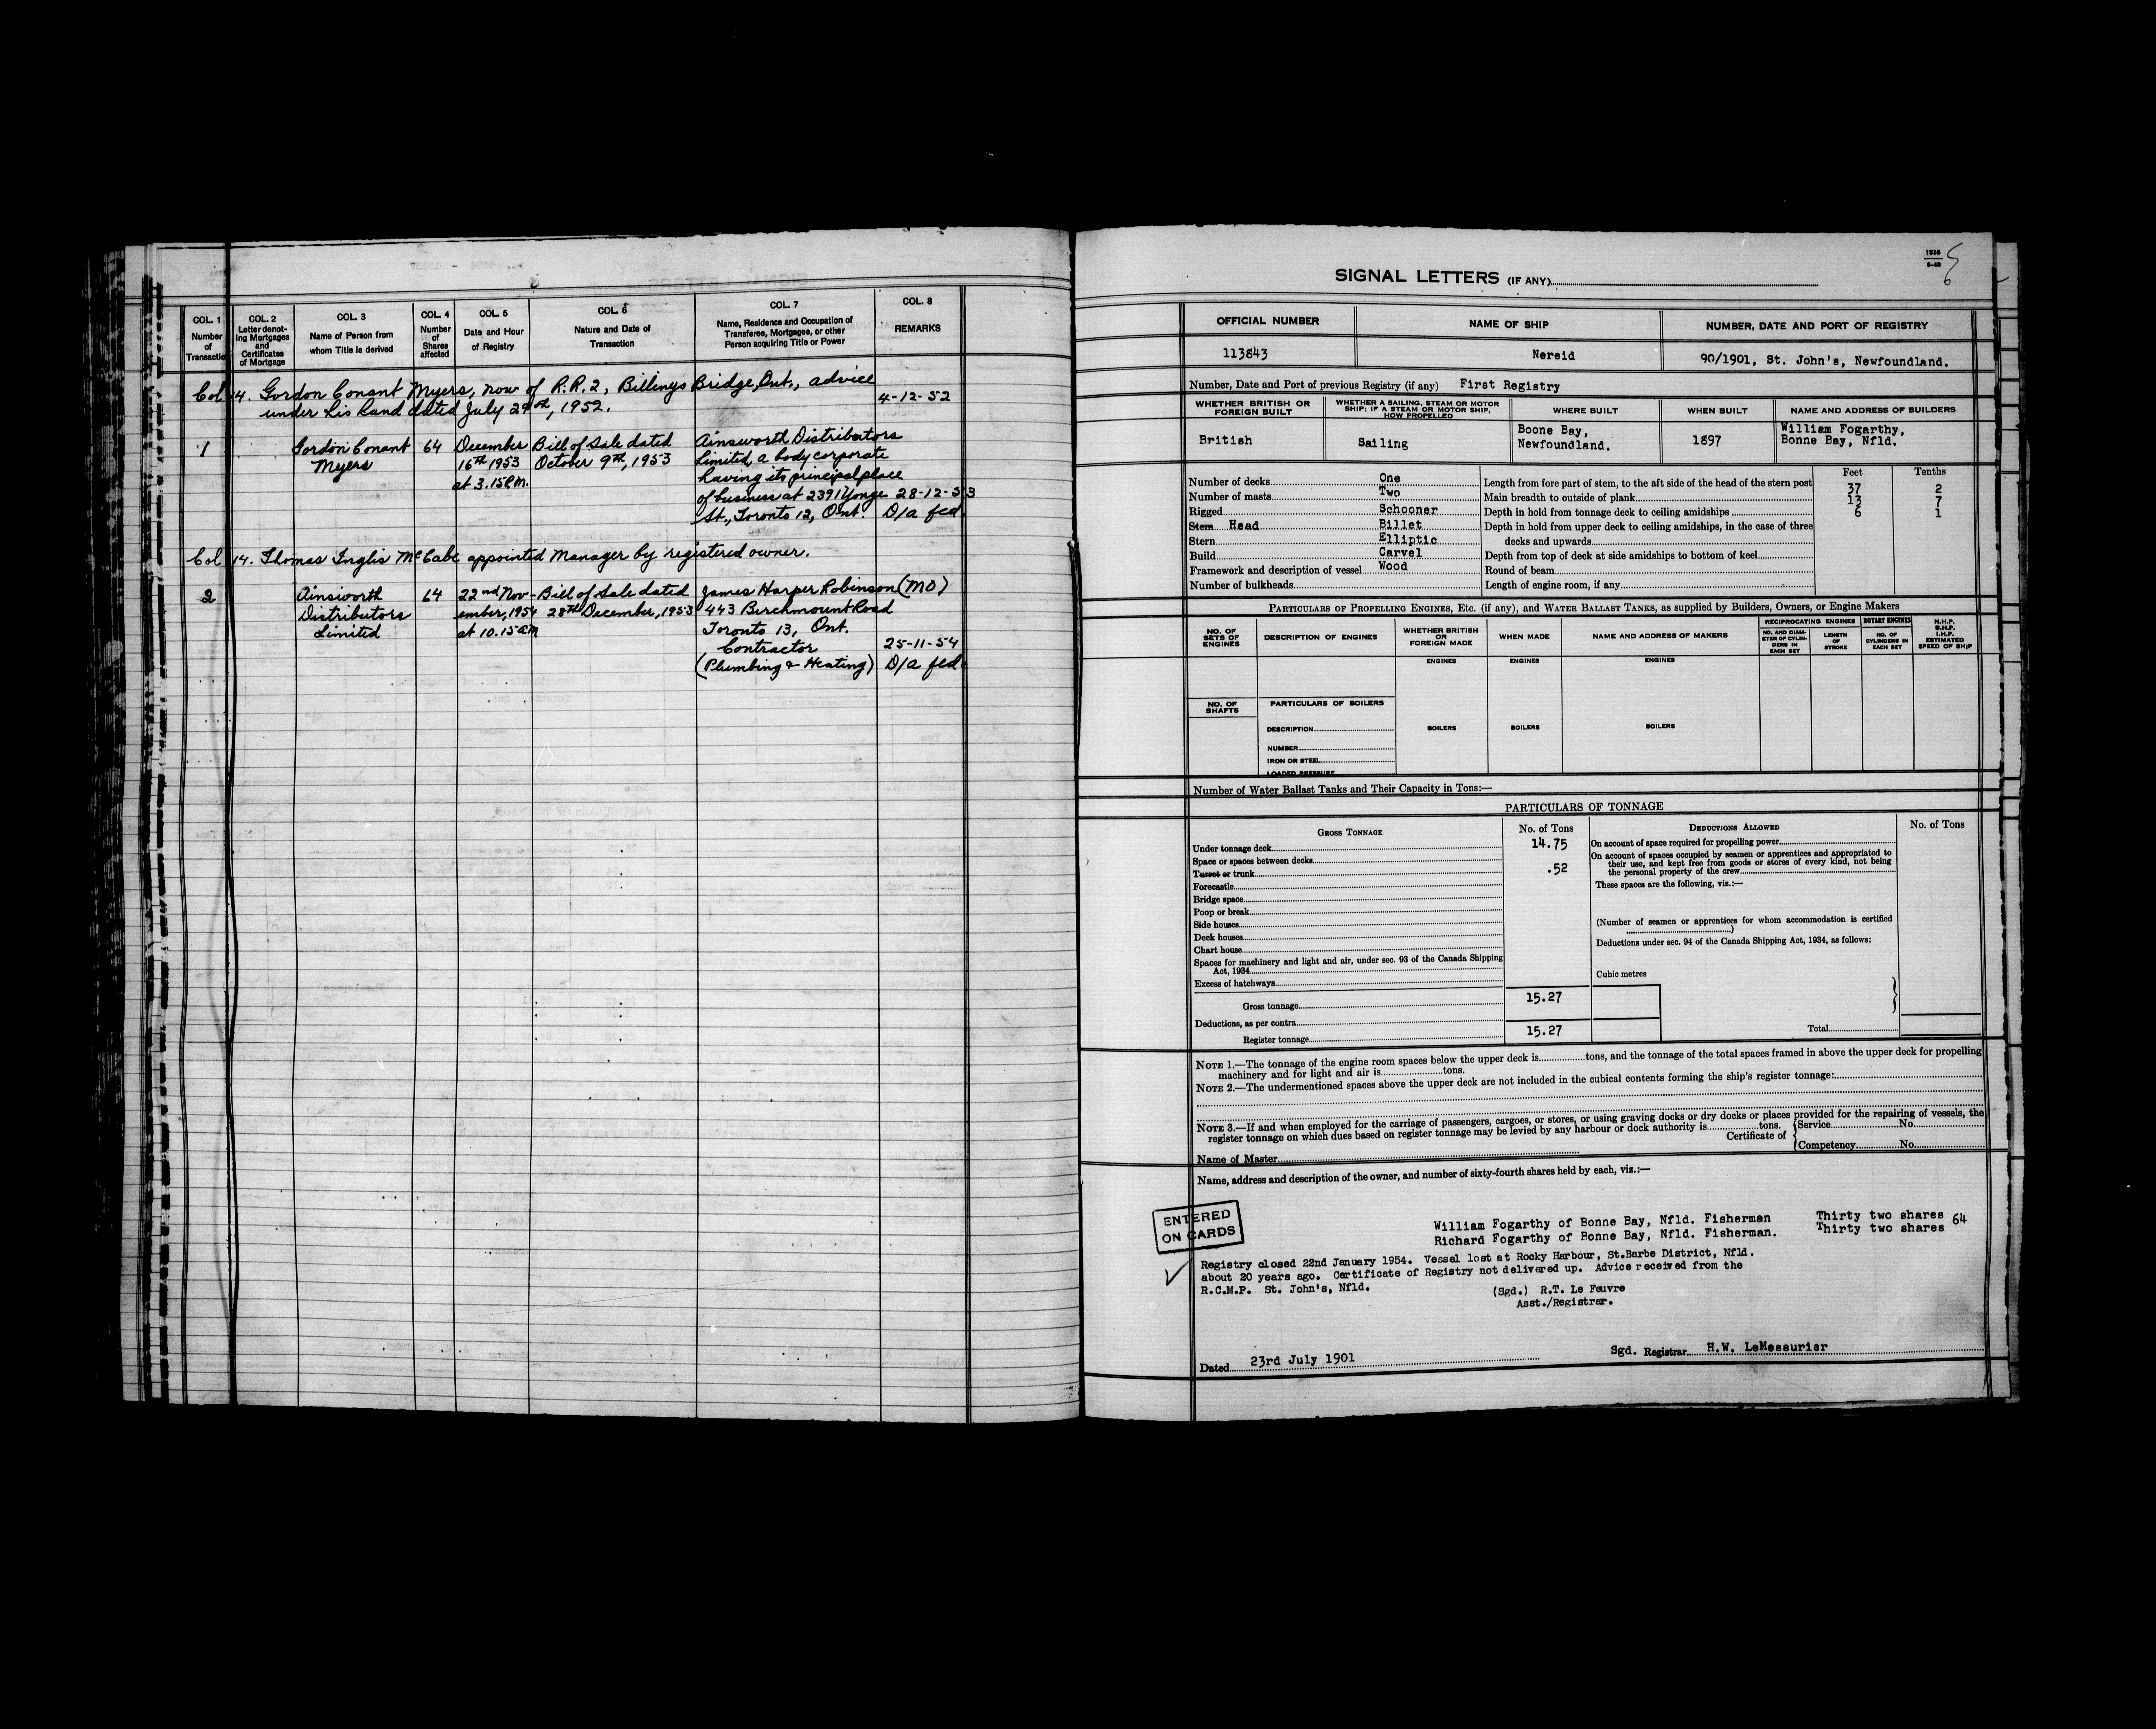 COL. 1
Number
of
Transaction
COL. 2
Letter denot-
ing Mortgages
and
Certificates
of Mortgage
COL. 3
Name of Person from
whom Title is derived
COL. 4
Number
of
Shares
affected
COL. 5
Date and Hour
of Registry
COL. 6
Nature and Date of
Transaction
COL. 7
Name, Residence and Occupation of
Transferee, Mortgagee, or other
Person acquiring Title or Power
COL. 8
REMARKS
Col 14. Gordon Conant Myers, now of R.R.2, Billings Bridge, Ont., advice
under his hand dated July 29th, 1952.
4-12-52
1
Gordon Conant
Myers
64
December
16th 1953
at 3.15 P.M.
Bill of Sale dated
October 9th, 1953
Ainsworth Distributors
Limited, a body corporate
having its principal place
of business at 2391 Yonge
St., Toronto 12, Ont.
28-12-53
D/a fed.
Col 14. Thomas Inglis McCabe appointed Manager by registered owner.
2
Ainsworth
Distributors
Limited
64
22nd Nov-
ember, 1954
at 10.15 am
Bill of Sale dated
28th December, 1953
James Harper Robinson (MO)
443 Birchmount Road
Toronto 13, Ont.
Contractor
(Plumbing & Heating)
25-11-54
D/a fed.
SIGNAL LETTERS (IF ANY)
OFFICIAL NUMBER
NAME OF SHIP
NUMBER, DATE AND PORT OF REGISTRY
113843
Nereid
90/1901, St. John's, Newfoundland.
Number, Date and Port of previous Registry (if any) First Registry
WHETHER BRITISH OR
FOREIGN BUILT
WHETHER A SAILING, STEAM OR MOTOR
SHIP; IF A STEAM OR MOTOR SHIP,
HOW PROPELLED
WHERE BUILT
WHEN BUILT
NAME AND ADDRESS OF BUILDERS
British
Sailing
Boone Bay,
Newfoundland.
1897
William Fogarthy,
Bonne Bay, Nfld.
Feet
Tenths
Number of decks One
Number of masts Two
Rigged Schooner
Stem Head Billet
Stern Elliptic
Build Carvel
Framework and description of vessel Wood
Number of bulkheads
Length from fore part of stem, to the aft side of the head of the stern post 37 2
Main breadth to outside of plank 13 7
Depth in hold from tonnage deck to ceiling amidships 6 1
Depth in hold from upper deck to ceiling amidships, in the case of three
decks and upwards
Depth from top of deck at side amidships to bottom of keel
Round of beam
Length of engine room, if any
PARTICULARS OF PROPELLING ENGINES, ETC. (if any), AND WATER BALLAST TANKS, as supplied by Builders, Owners, or Engine Makers
NO. OF
SETS OF
ENGINES
DESCRIPTION OF ENGINES
WHETHER BRITISH
OR
FOREIGN MADE
WHEN MADE
NAME AND ADDRESS OF MAKERS
RECIPROCATING ENGINES
NO. AND DIAM-
ETER OF CYLIN-
DERS IN
EACH SET
LENGTH
OF
STROKE
ROTARY ENGINES
NO. OF
CYLINDERS IN
EACH SET
N.H.P.
B.H.P.
I.H.P.
ESTIMATED
SPEED OF SHIP
ENGINES
ENGINES
ENGINES
NO. OF
SHAFTS
PARTICULARS OF BOILERS
DESCRIPTION
NUMBER
IRON OR STEEL
LOADED PRESSURE
BOILERS
BOILERS
BOILERS
Number of Water Ballast Tanks and Their Capacity in Tons:—
PARTICULARS OF TONNAGE
GROSS TONNAGE
No. of Tons
DEDUCTIONS ALLOWED
No. of Tons
Under tonnage deck 14.75
Space or spaces between decks
Turret or trunk .52
Forecastle
Bridge space
Poop or break
Side houses
Deck houses
Chart house
Spaces for machinery and light and air, under sec. 93 of the Canada Shipping
Act, 1934
Excess of hatchways
Gross tonnage 15.27
Deductions, as per contra
Register tonnage 15.27
On account of space required for propelling power
On account of spaces occupied by seamen or apprentices and appropriated to
their use, and kept free from goods or stores of every kind, not being
the personal property of the crew
These spaces are the following, viz.:—
(Number of seamen or apprentices for whom accommodation is certified
)
Deductions under sec. 94 of the Canada Shipping Act, 1934, as follows:
Cubic metres
Total
NOTE 1.—The tonnage of the engine room spaces below the upper deck is tons, and the tonnage of the total spaces framed in above the upper deck for propelling
machinery and for light and air is tons.
NOTE 2.—The undermentioned spaces above the upper deck are not included in the cubical contents forming the ship's register tonnage:
NOTE 3.—If and when employed for the carriage of passengers, cargoes, or stores, or using graving docks or dry docks or places provided for the repairing of vessels, the
register tonnage on which dues based on register tonnage may be levied by any harbour or dock authority is tons.
Certificate of
Service No.
Competency No.
Name of Master
Name, address and description of the owner, and number of sixty-fourth shares held by each, viz.:—
ENTERED
ON CARDS
William Fogarthy of Bonne Bay, Nfld. Fisherman Thirty two shares
Richard Fogarthy of Bonne Bay, Nfld. Fisherman. Thirty two shares 64
Registry closed 22nd January 1954. Vessel lost at Rocky Harbour, St.Barbe District, Nfld.
about 20 years ago. Certificate of Registry not delivered up. Advice received from the
R.C.M.P. St. John's, Nfld.
(Sgd.) R.T. Le Feuvre
Asst./Registrar.
Dated 23rd July 1901
Sgd. Registrar H.W. LeMessurier